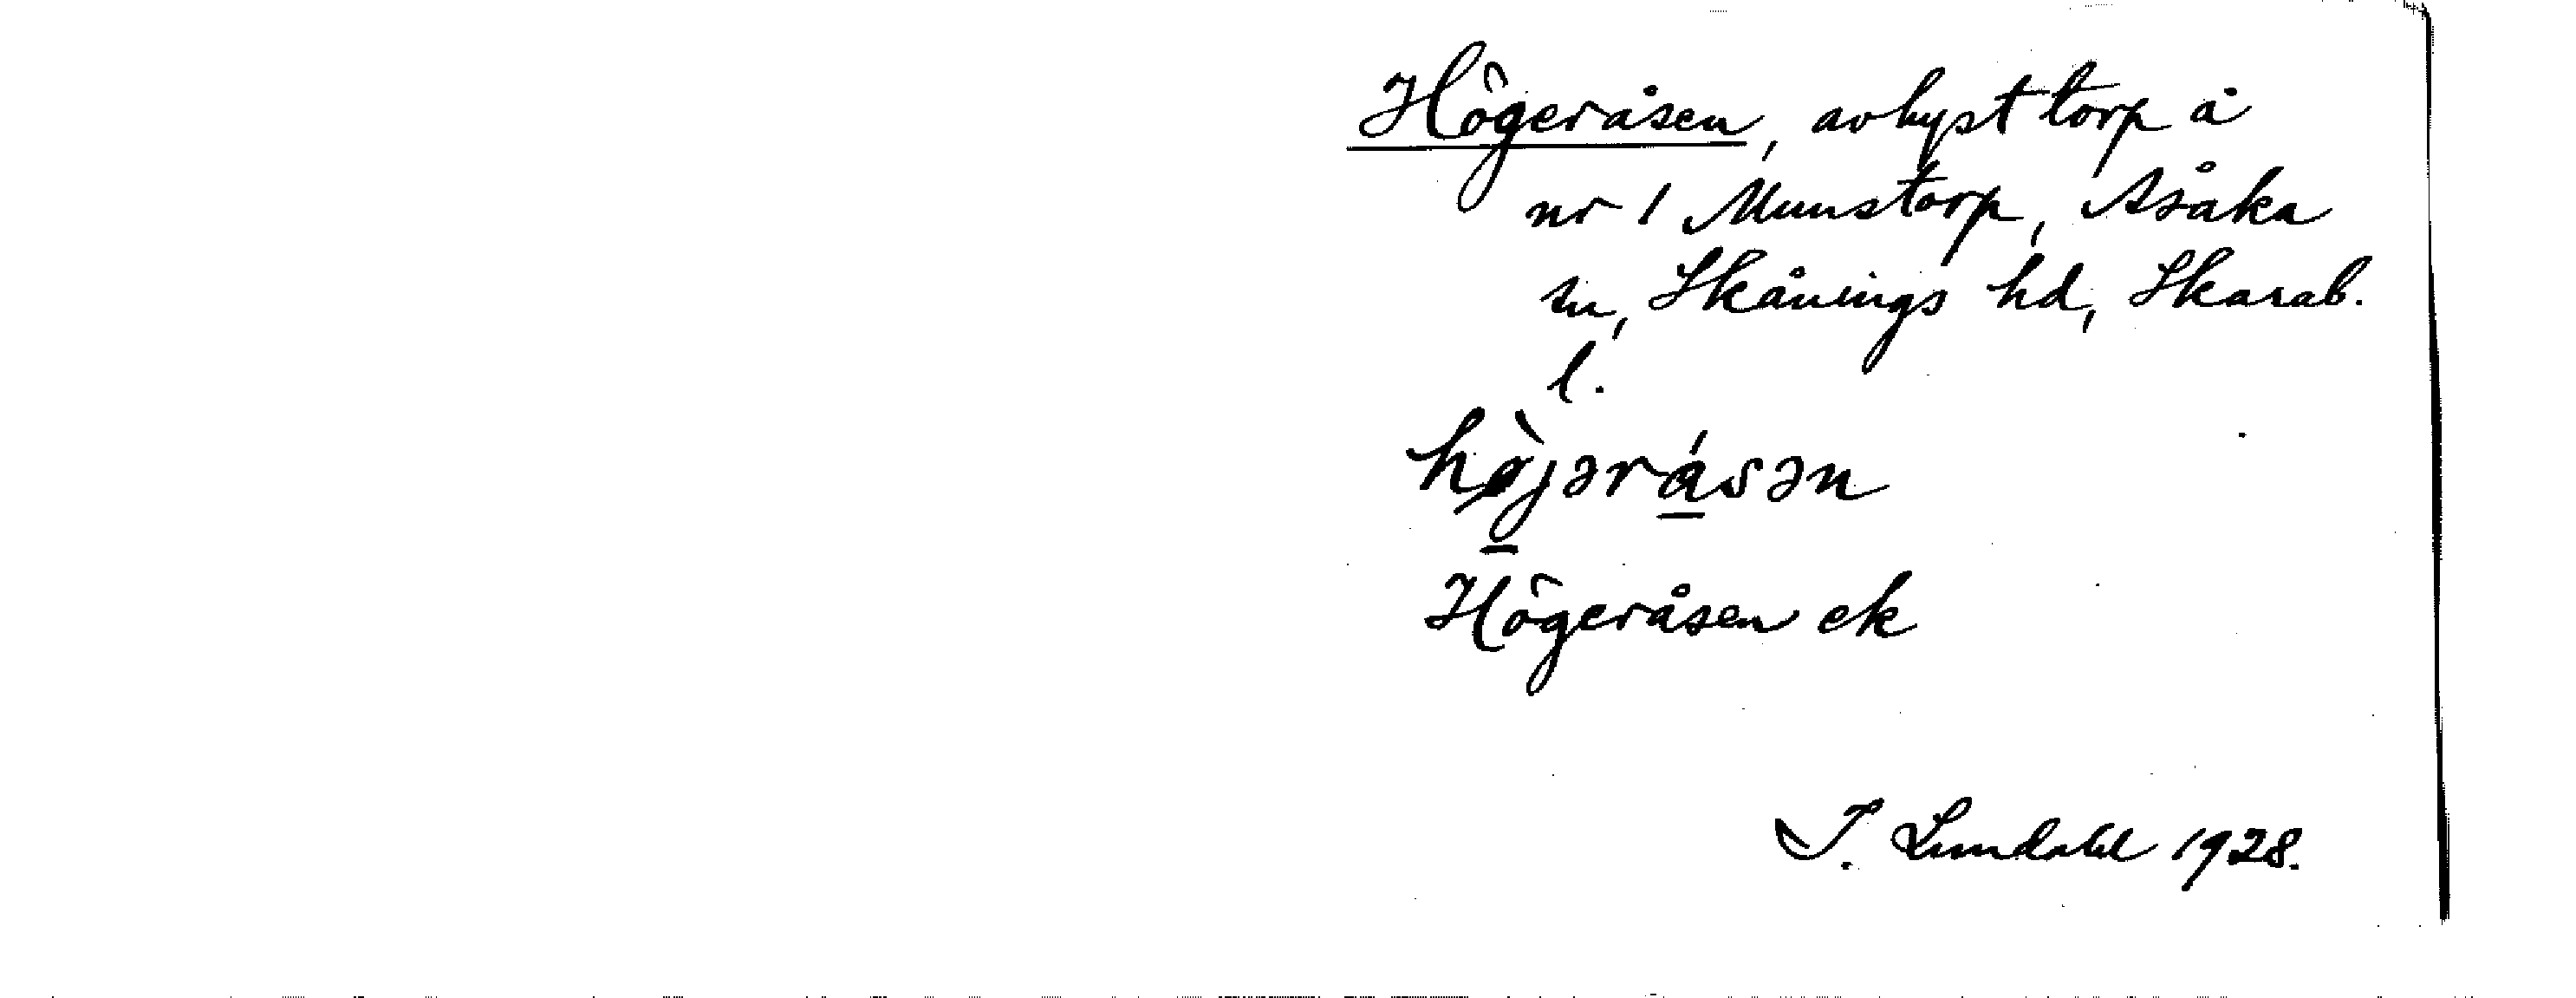 Högeråsen, avhyst torp å
nr 1 Munstorp, Åsaka
sn, Skånings hd, Skarab.
l.
hø̀jərásən
Högeråsen ek
I. Lundahl 1928.